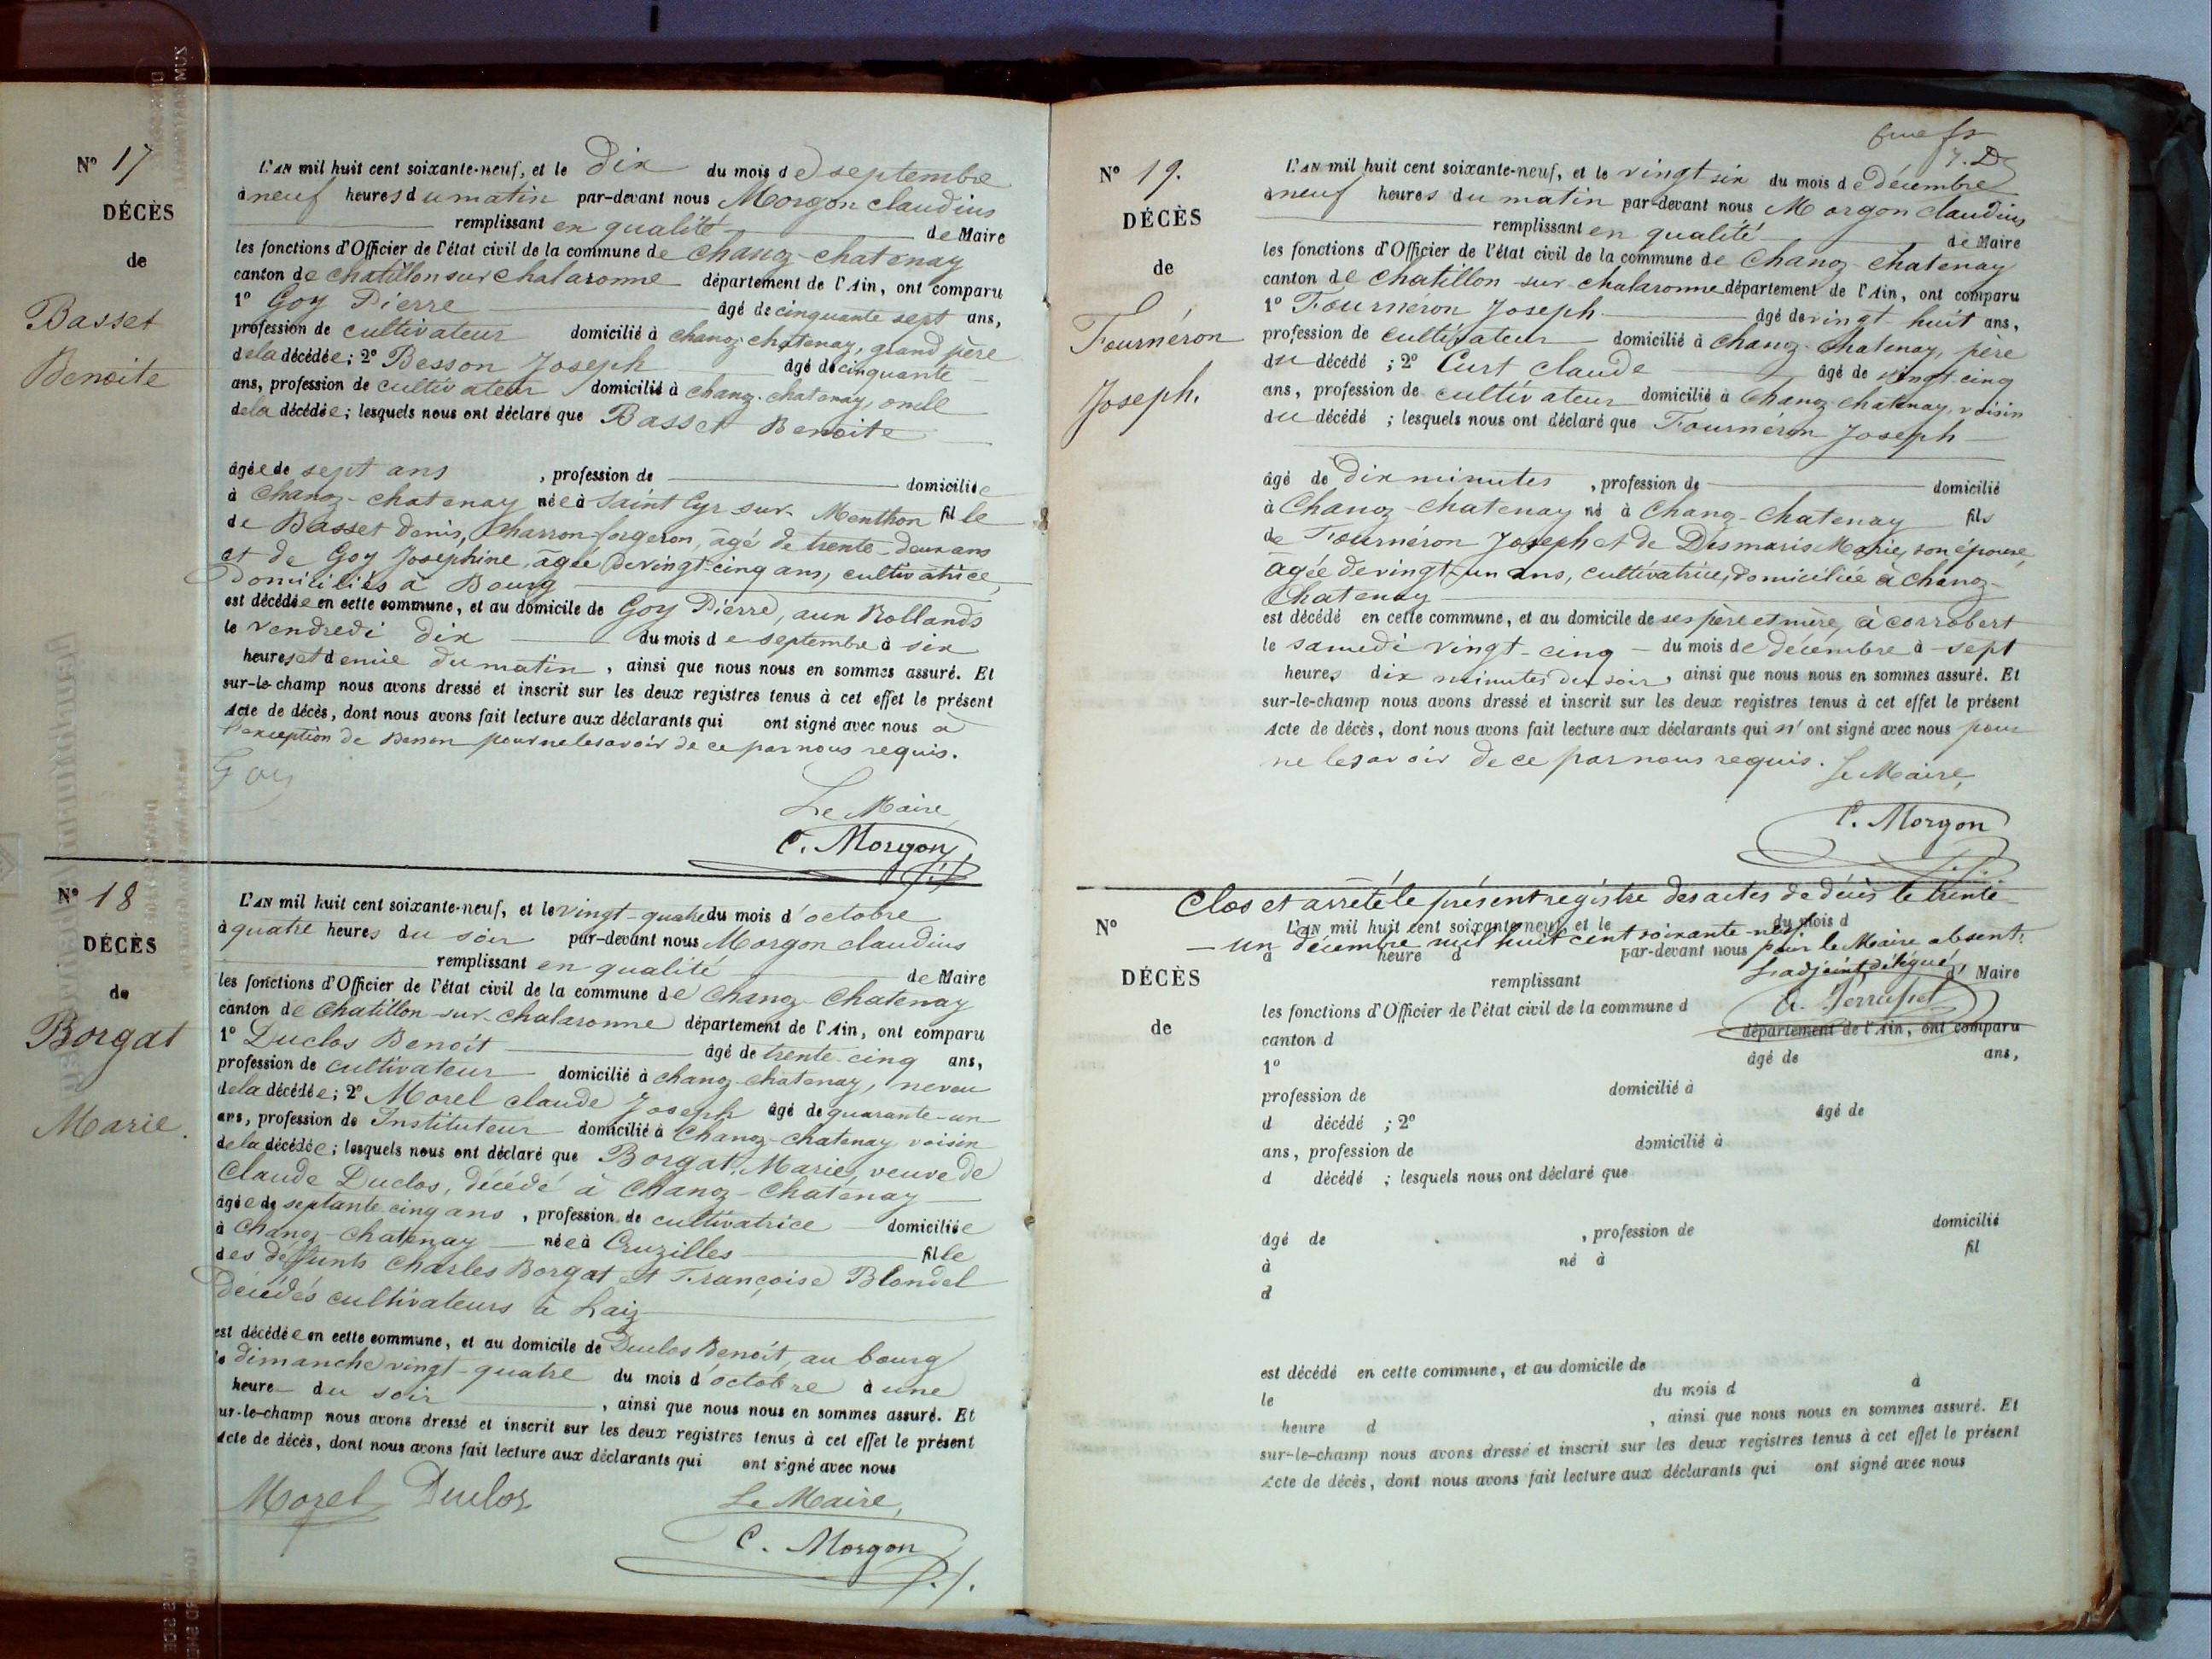 N° 17
DÉCÈS
de
Basset
Benoite
L'AN mil huit cent soixante-neuf, et le dix du mois de septembre
à neuf heures du matin par-devant nous Morgon claudius
remplissant en qualité de Maire
les fonctions d'Officier de l'état civil de la commune de Chanoz-chatenay
canton de chatillon sur chalaronne département de l'Ain, ont comparu
1° Goy Pierre âgé de cinquante sept ans,
profession de cultivateur domicilié à chanoz-chatenay, grand père
de la décédée; 2° Besson Joseph âgé de cinquante
ans, profession de cultivateur domicilié à chanoz-chatenay, oncle
de la décédée; lesquels nous ont déclaré que Basset Benoite
âgée de sept ans, profession de domiciliée
à Chanoz-chatenay née à Saint Cyr sur Menthon fille
de Basset Denis, charron forgeron, âgé de trente-deux ans
et de Goy Joséphine, âgée de vingt-cinq ans, cultivatrice,
Domiciliés à Bourg
est décédée en cette commune, et au domicile de Goy Pierre, aux Rollands
le vendredi dix du mois de septembre à six
heures et demie du matin, ainsi que nous nous en sommes assuré. Et
sur-le-champ nous avons dressé et inscrit sur les deux registres tenus à cet effet le présent
Acte de décès, dont nous avons fait lecture aux déclarants qui ont signé avec nous à
l'exception de Besson pour ne le savoir de ce par nous requis.
Goy
Le Maire,
C. Morgon
N° 18
DÉCÈS
de
Borgat
Marie.
L'AN mil huit cent soixante-neuf, et le vingt-quatre du mois d'octobre
à quatre heures du soir par-devant nous Morgon claudius
remplissant en qualité de Maire
les fonctions d'Officier de l'état civil de la commune de Chanoz-Chatenay
canton de Chatillon-sur-chalaronne département de l'Ain, ont comparu
1° Duclos Benoît âgé de trente-cinq ans,
profession de cultivateur domicilié à chanoz-chatenay, neveu
de la décédée; 2° Morel claude Joseph âgé de quarante-un
ans, profession de Instituteur domicilié à Chanoz-chatenay voisin
de la décédée; lesquels nous ont déclaré que Borgat Marie, veuve de
Claude Duclos, décédé à Chanoz-Chatenay
âgée de septante cinq ans, profession de cultivatrice domiciliée
à Chanoz-Chatenay née à Cruzilles fille
des défunts Charles Borgat et Françoise Blondel
Décédés cultivateurs à Laiz
est décédée en cette commune, et au domicile de Duclos Benoît, au bourg
le dimanche vingt-quatre du mois d'octobre à une
heure du soir, ainsi que nous nous en sommes assuré. Et
ur-le-champ nous avons dressé et inscrit sur les deux registres tenus à cet effet le présent
Acte de décès, dont nous avons fait lecture aux déclarants qui ont signé avec nous
Morel Duclos
Le Maire,
C. Morgon
N° 19.
DÉCÈS
de
Fournéron
Joseph.
L'AN mil huit cent soixante-neuf, et le vingt six du mois de décembre
à neuf heures du matin par-devant nous Morgon Claudius
remplissant en qualité de Maire
les fonctions d'Officier de l'état civil de la commune de Chanoz-chatenay
canton de chatillon-sur-chalaronne département de l'Ain, ont comparu
1° Fournéron Joseph âgé de vingt-huit ans,
profession de cultivateur domicilié à chanoz-chatenay, père
du décédé; 2° Curt claude âgé de vingt-cinq
ans, profession de cultivateur domicilié à Chanoz-chatenay, voisin
du décédé; lesquels nous ont déclaré que Fournéron Joseph
âgé de Dix minutes, profession de domicilié
à Chanoz-chatenay né à Chanoz-Chatenay fils
de Fournéron Joseph et de Desmaris Marie, son épouse,
âgée de vingt-un ans, cultivatrice, domiciliée à chanoz-
Chatenay
est décédé en cette commune, et au domicile de ses père et mère, à corrobert
le samedi vingt-cinq du mois de décembre à sept
heures dix minutes du soir, ainsi que nous nous en sommes assuré. Et
sur-le-champ nous avons dressé et inscrit sur les deux registres tenus à cet effet le présent
Acte de décès, dont nous avons fait lecture aux déclarants qui n'ont signé avec nous pour
ne le savoir de ce par nous requis. Le Maire,
C. Morgon
Clos et arrêté le présent registre des actes de décès le trente-
N° L'AN mil huit cent soixante-neuf, et le du mois d
un décembre mil huit cent soixante-neuf pour le Maire absent,
à heure d par-devant nous
L'adjoint délégué,
DÉCÈS
remplissant Maire
les fonctions d'Officier de l'état civil de la commune d
de
canton d département de l'Ain, ont comparu
1° âgé de ans,
profession de domicilié à
d décédé ; 2° âgé de
ans, profession de domicilié à
d décédé ; lesquels nous ont déclaré que
âgé de , profession de domicilié
à né à fil
d
est décédé en cette commune, et au domicile de
le du mois d à
heure d , ainsi que nous nous en sommes assuré. Et
sur-le-champ nous avons dressé et inscrit sur les deux registres tenus à cet effet le présent
Acte de décès, dont nous avons fait lecture aux déclarants qui ont signé avec nous